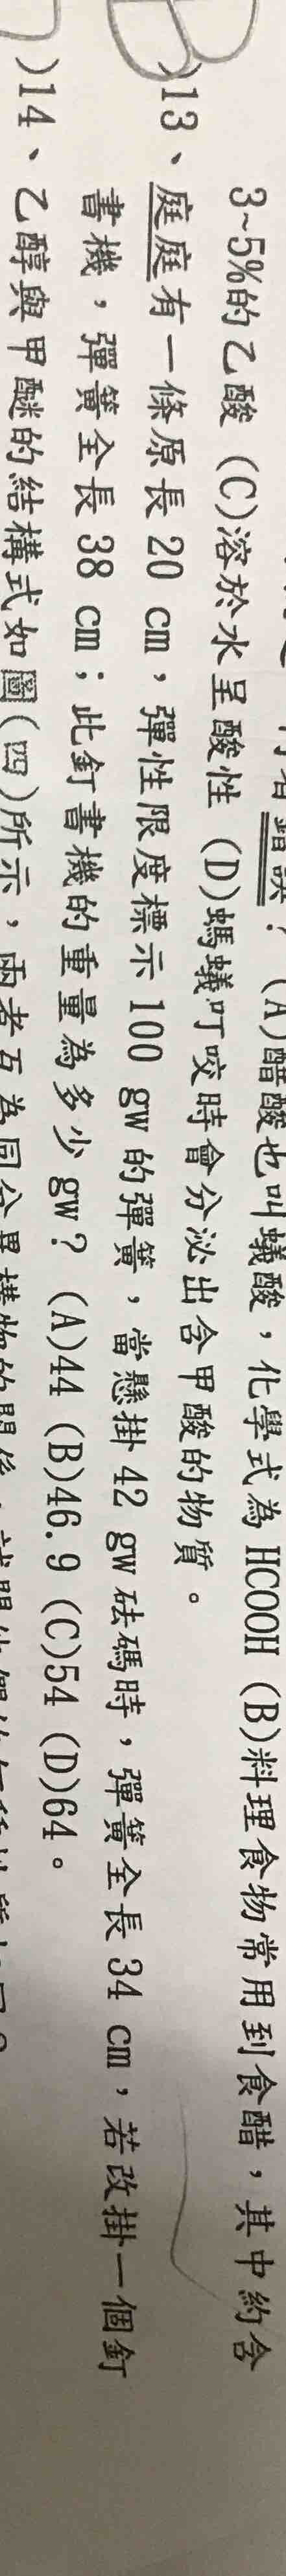 錯誤？ (A)醋酸也叫蟻酸，化學式為 HCOOH (B)料理食物常用到食醋，其中約含
3~5%的乙酸 (C)溶於水呈酸性 (D)螞蟻叮咬時會分泌出含甲酸的物質。
)13、庭庭有一條原長 20 cm，彈性限度標示 100 gw 的彈簧，當懸掛 42 gw 砝碼時，彈簧全長 34 cm，若改掛一個釘
書機，彈簧全長 38 cm；此釘書機的重量為多少 gw？ (A)44 (B)46.9 (C)54 (D)64。
)14、乙醇與甲醚的結構式如圖(四)所示，兩者互為同分異構物的關係，